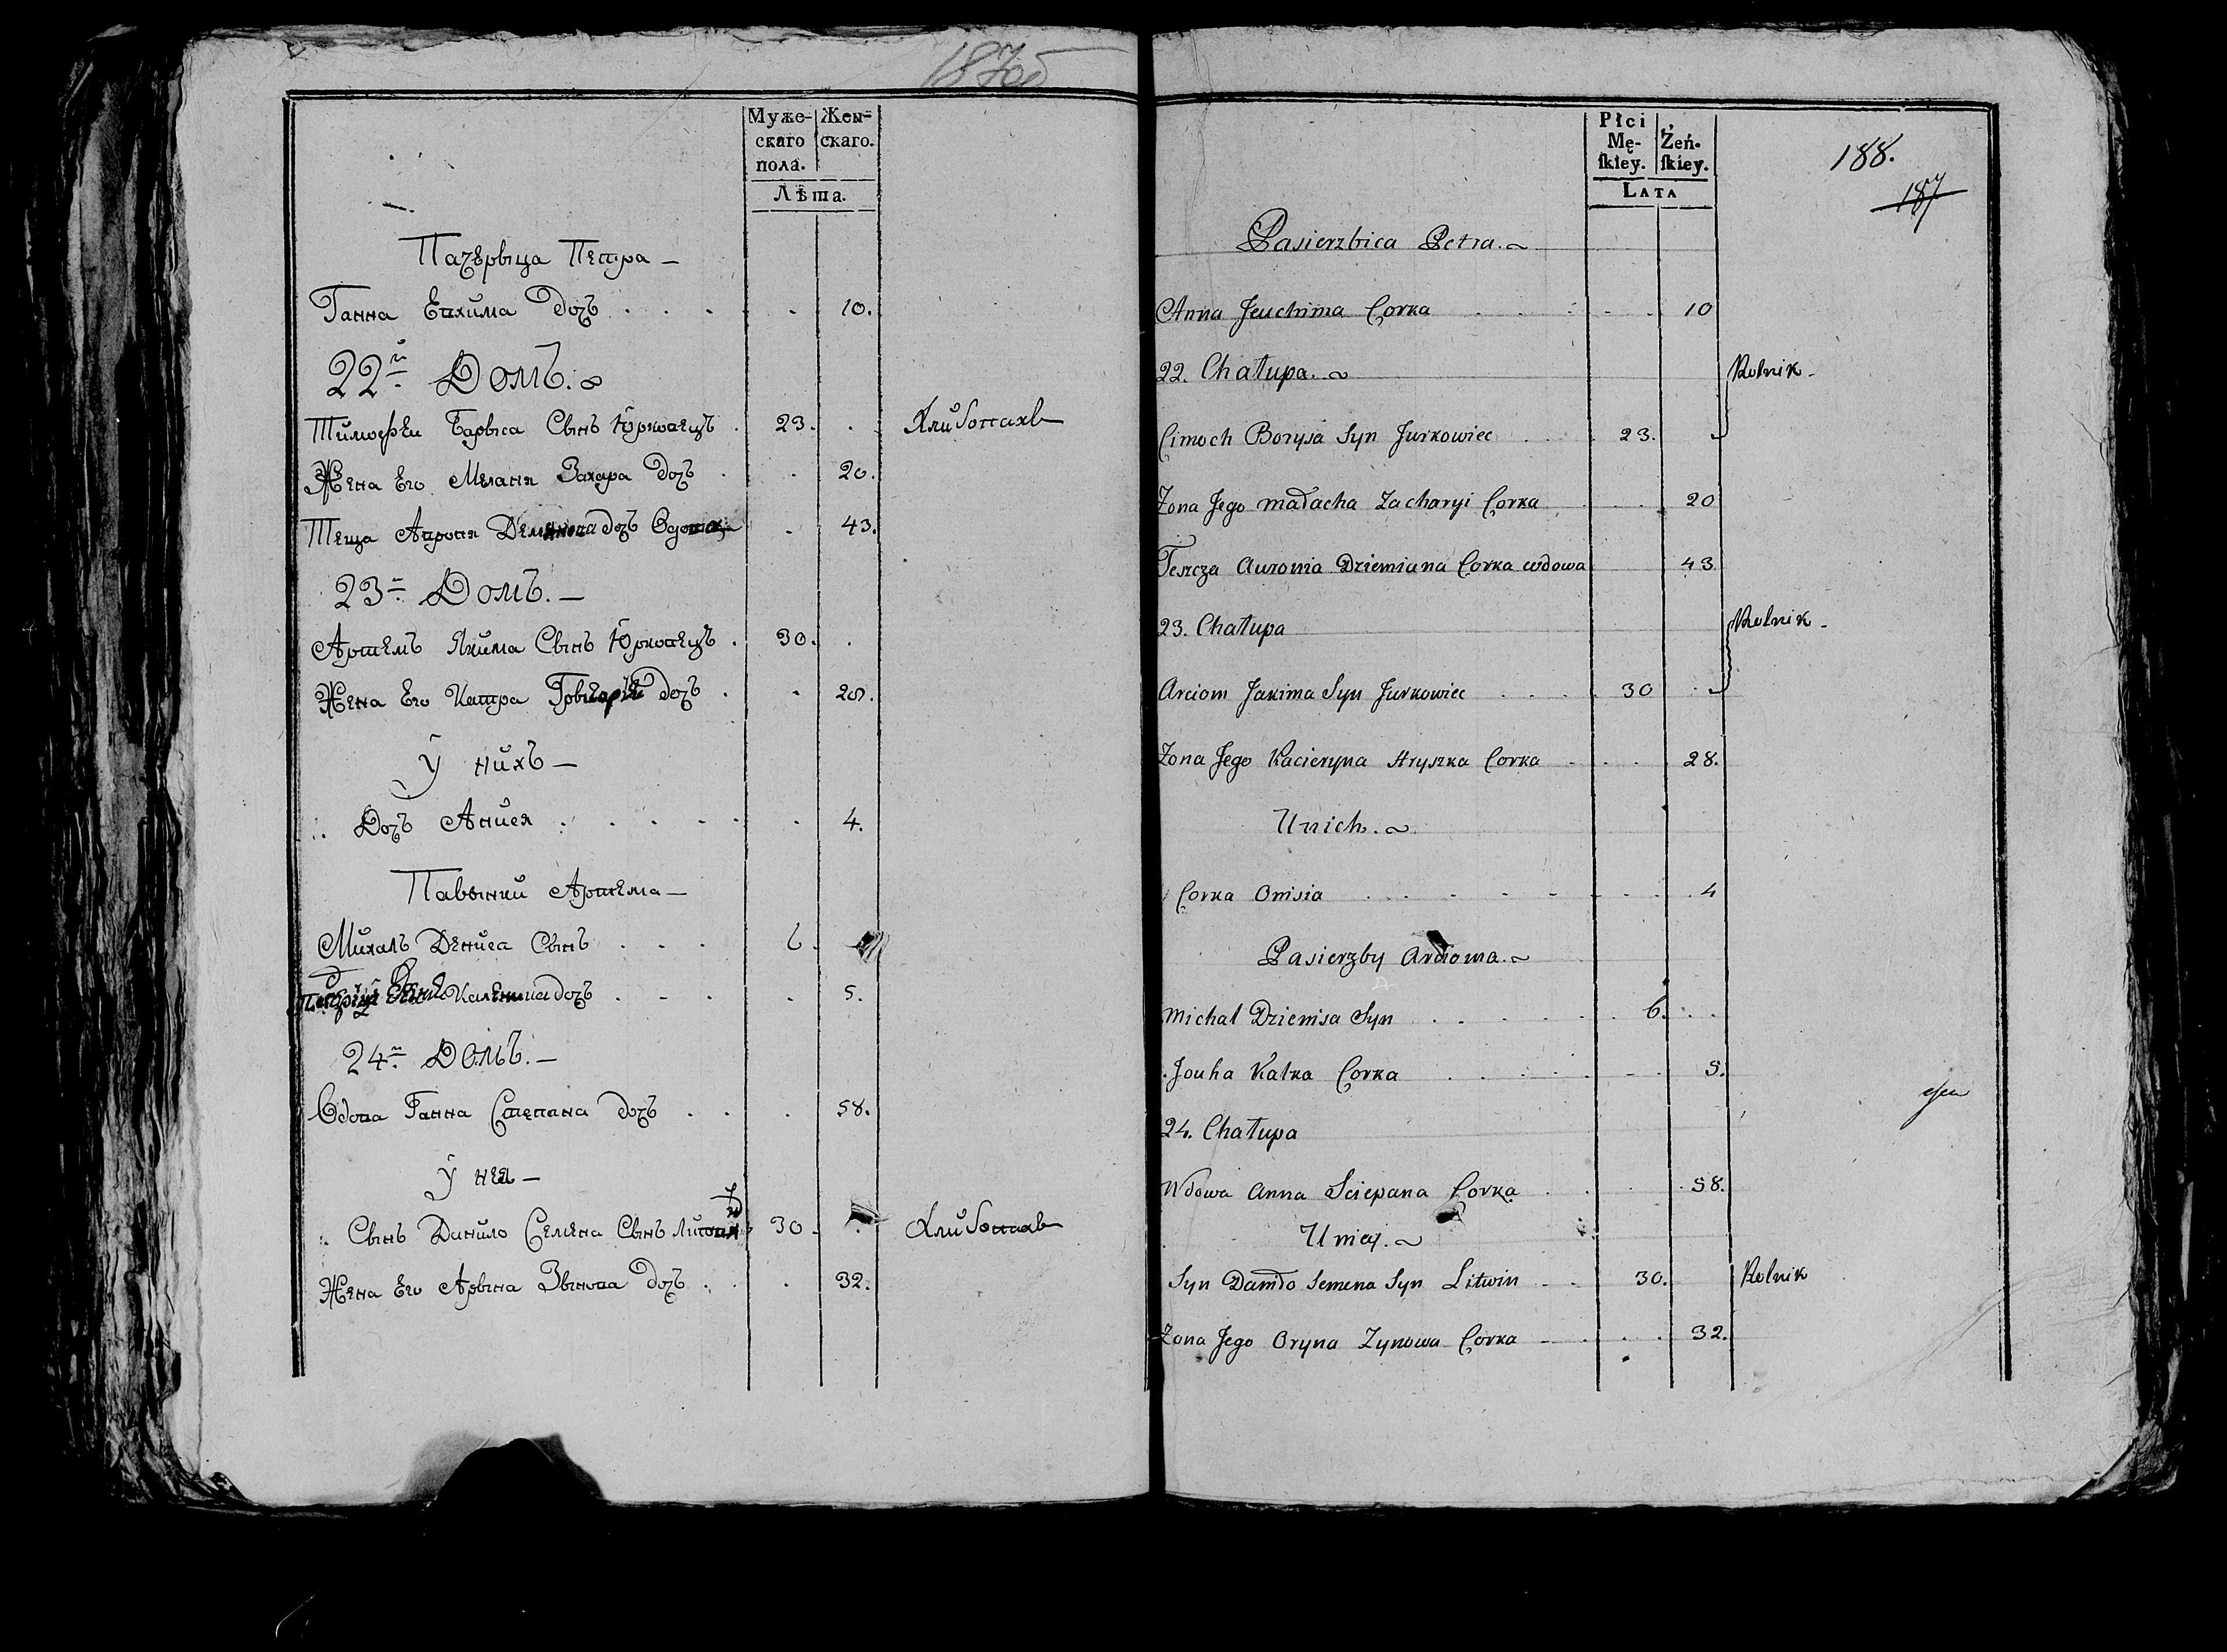 187об
Муже-
скаго
пола.
Жен-
скаго.
Лѣта.
Пачервица Петра —
Ганна Евхима дочь 10.
22й Домъ.
Тимофеи Барыса Сынъ Юрковецъ 23. Хлибопахъ
Жена Его Меланя Захара дочь 20.
Теща Авроня Демянова дочь Вдова 43.
23й Домъ. —
Артемъ Якима Сынъ Юрковецъ 30.
Жена Его Катра дочь 28.
У нихъ —
Дочь Анися 4.
Павынки Артема —
Михалъ Дениса Сынъ 6.
дочь 5.
24й Домъ. —
Вдова Ганна Степана дочь 58.
У нея —
Сынъ Данило Семена Сынъ 30. Хлибопахъ
Жена Его Арына Зынова дочь 32.
Płci
Mę-
ſkiey.
Żeń-
ſkiey.
LATA
188.
187
Pasierzbica Petra.
Anna Jeuchima Corka 10
22. Chałupa. Rolnik
Cimoch Borysa Syn Jurkowiec 23.
Zona Jego Małacha Zacharyi Corka 20
Teszcza Auronia Dziemiana Corka wdowa 43
23. Chałupa Rolnik
Arciom Jakima Syn Jurkowiec 30
Zona Jego Kacieryna Hryszka Corka 28.
U nich.
Corka Onisia 4
Pasierzby Arcioma.
Michał Dzienisa Syn 6.
Jouha Kalka Corka 5.
24. Chałupa
Wdowa Anna Sciepana Corka 58.
U niey.
Syn Daniło Semena Syn Litwin 30. Rolnik
Zona Jego Oryna Zynowa Corka 32.